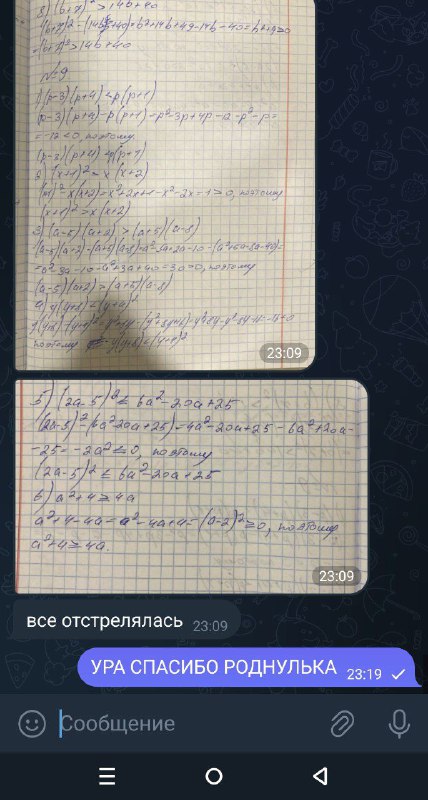 (b+7)² > 14b+40
№9
1) (p-3)(p+4) < p(p+1)
(p-3)(p+4)-p(p+1)=p²-3p+4p-12-p²-p=
=-12<0, поэтому
(p-3)(p+4)<p(p+1)
2) (x+1)² > x(x+2)
x(x+2)=x²+2x+1-x²-2x=1>0, поэтому
(x+1)²>x(x+2)
3) (a-5)(a+2) > (a+5)(a-8)
поэтому
(a-5)(a+2)>(a+5)(a-8)
4) y(y+8)<(y+4)²
поэтому y(y+8)<(y+4)²
23:09
5) (2a-5)² ≤ 6a²-20a+25
(2a-5)²-(6a²-20a+25)=4a²-20a+25-6a²+20a-
-25=-2a²≤0, поэтому
(2a-5)² ≤ 6a²-20a+25
6) a²+4 ≥ 4a
a²+4-4a=a²-4a+4=(a-2)²≥0, поэтому
a²+4≥4a.
23:09
все отстрелялась 23:09
УРА СПАСИБО РОДНУЛЬКА 23:19
Сообщение